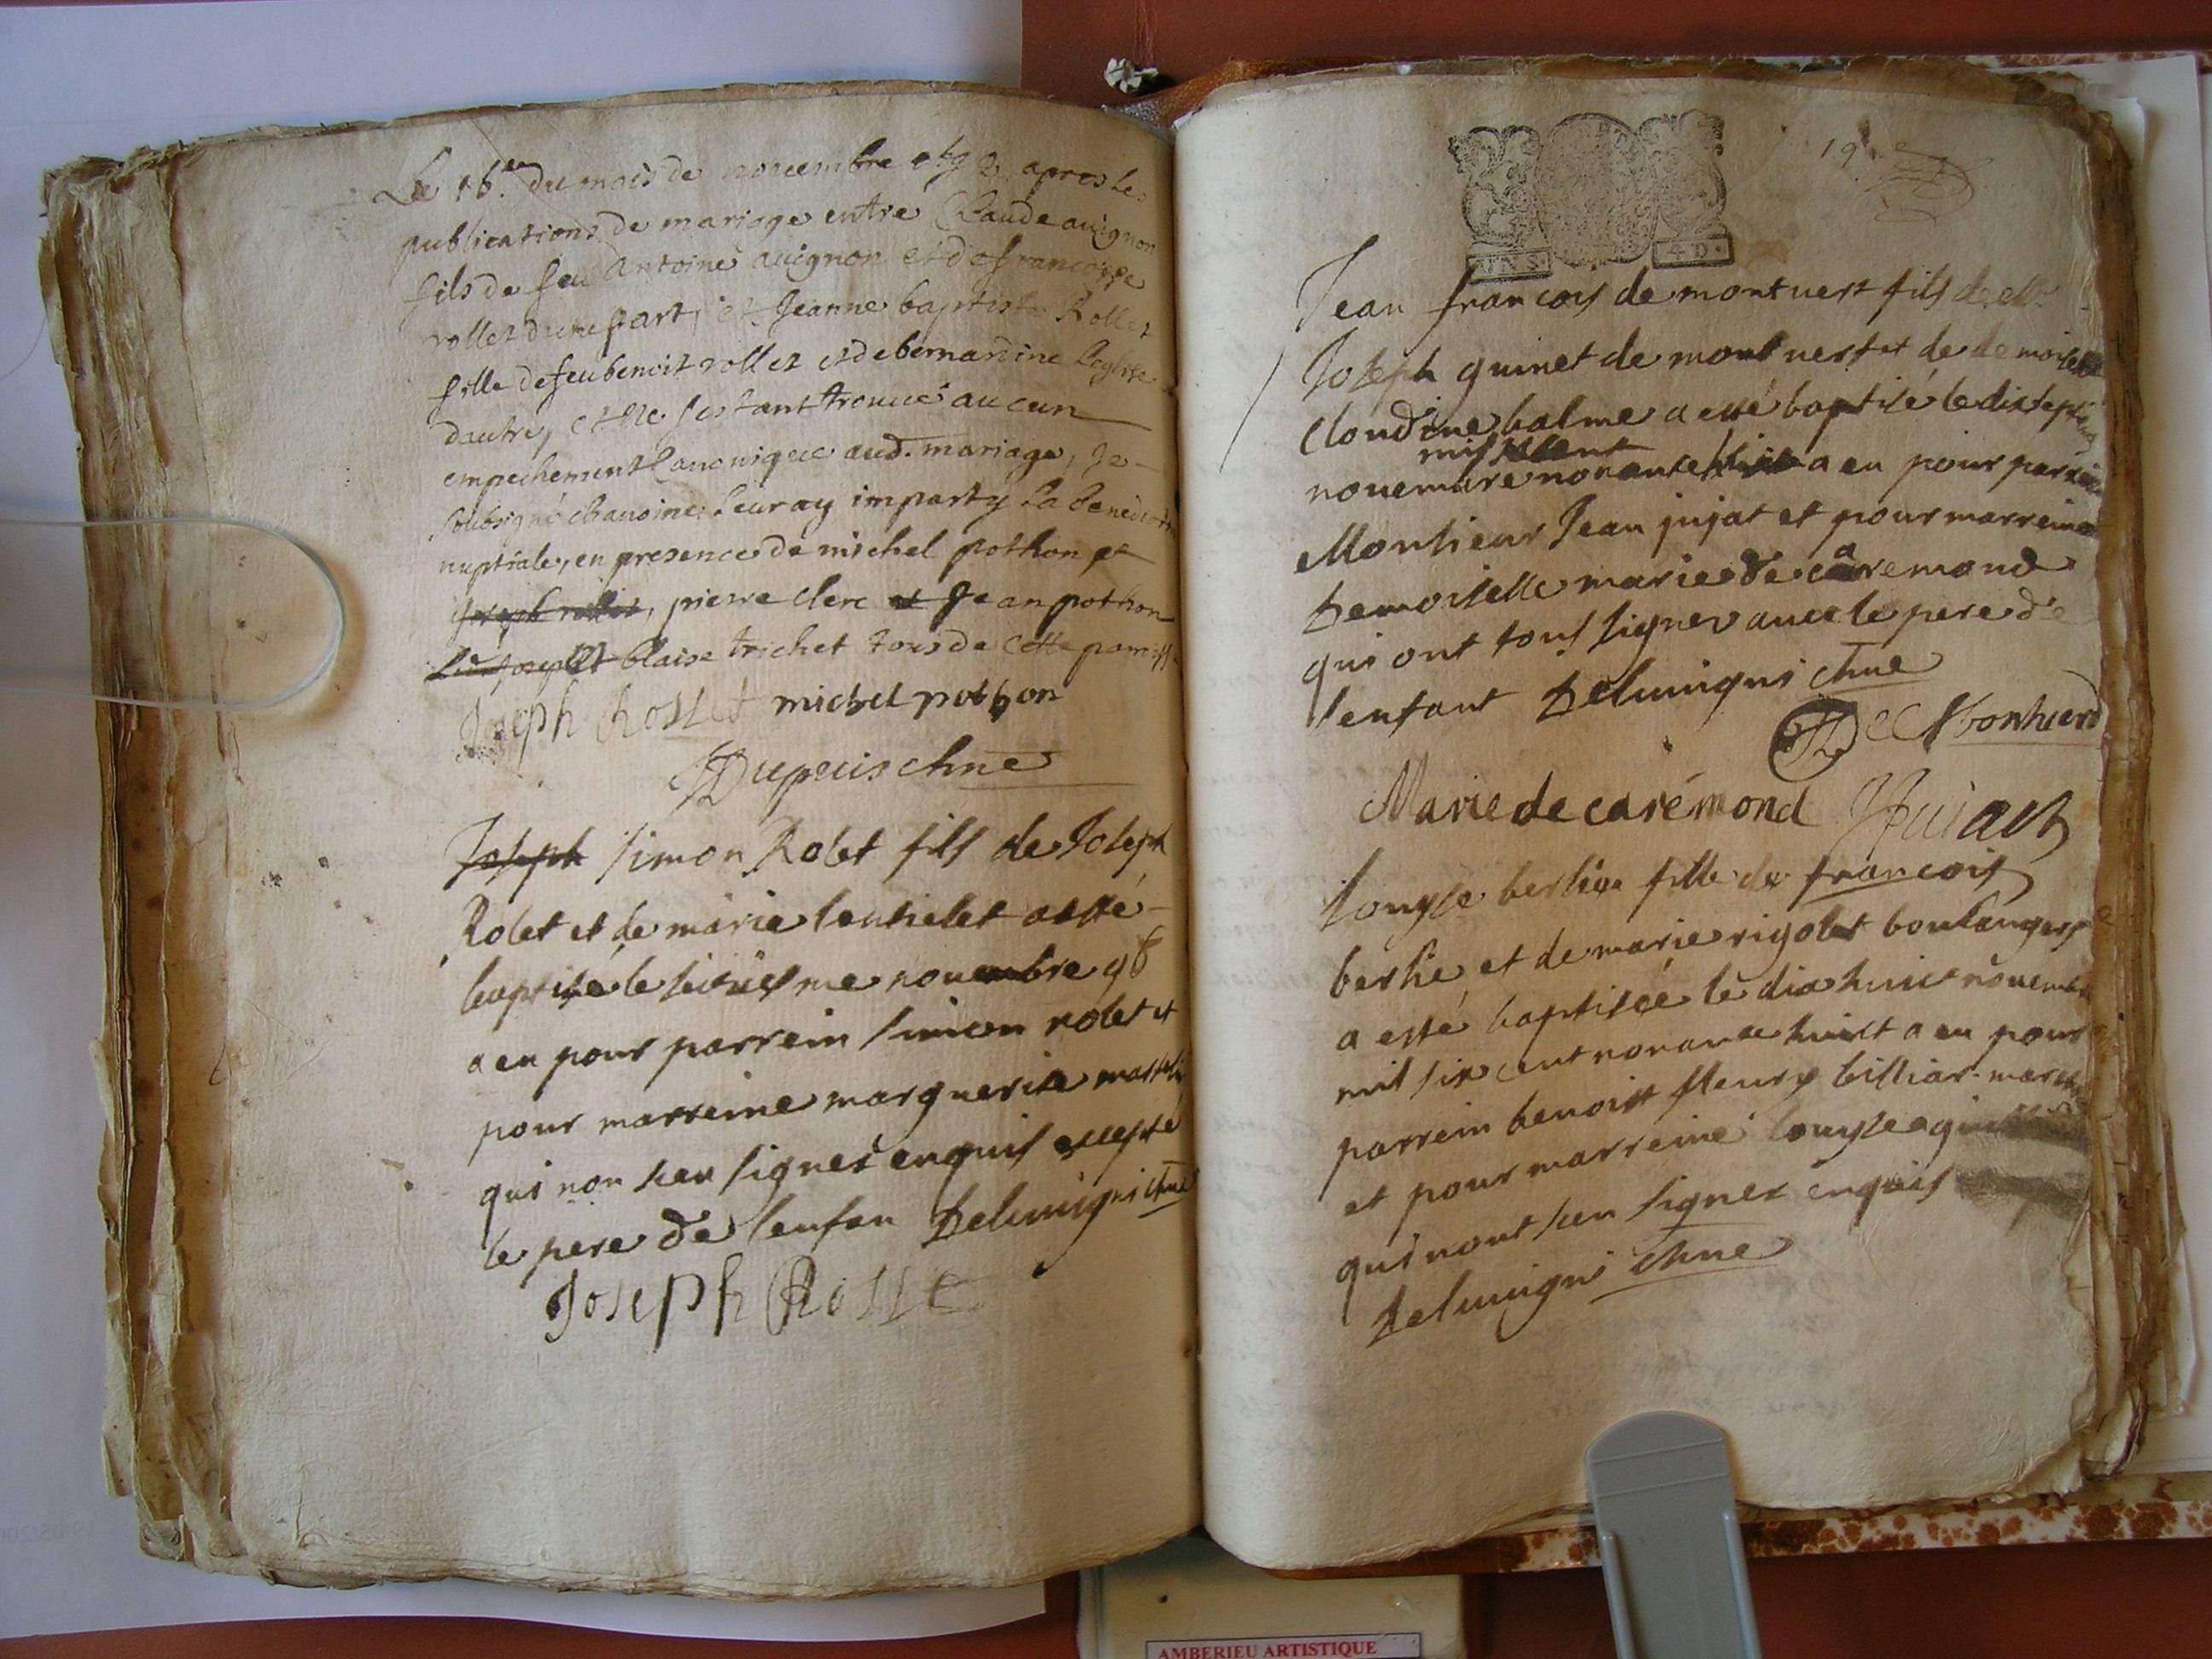 Le 16.e du mois de novembre apres les
publications de mariage entre Claude avignon
fils de feu Antoine avignon et de francoyse
rollet dune part, et Jeanne baptiste Rollet
fille de feu benoit rollet et de bernardine
dautre, et ne sestant trouvé aucun
empechement Canonique aud. mariage, Je
soubsigné chanoine Leur ay imparty La benediction
nuptiale, en presence de michel pothon et
joseph rollet, pierre clerc et Jean pothon
blaise trichet tous de cette parroisse
Joseph Rollet michel pothon
Dupuis chne
Joseph simon Rolet fils de Joseph
Rolet et de marie lentielet a esté
baptisé le seisiesme novembre 98
a eu pour parrein simon rolet et
pour marreine marguerite
qui non sceu signer enquis excepté
le pere de lenfan Delumigni chne
Joseph Rollet
19
UN S. 4 D.
Jean francoys de montvert fils de
Joseph guinet de montvert et de demoiselle
Cloudine balme a esté baptisé le dixseptieme
mil six cent
novembre nonante huit a eu pour parrein
Monsieur Jean jujat et pour marreine
Demoiselle marie de caremond
qui ont tous signer avec le pere de
lenfant Delumigni chne
De Montverd
Marie de carémond Jujact
louyse berlie fille de francois
berlie et de marie rigolet boulangers
a esté baptisée le dix huict novembre
mil six cent nonante huict a eu pour
parrein benoist fleury billiar
et pour marreine louyse
qui nont sceu signer enquis
Delumigni chne
AMBERIEU ARTISTIQUE